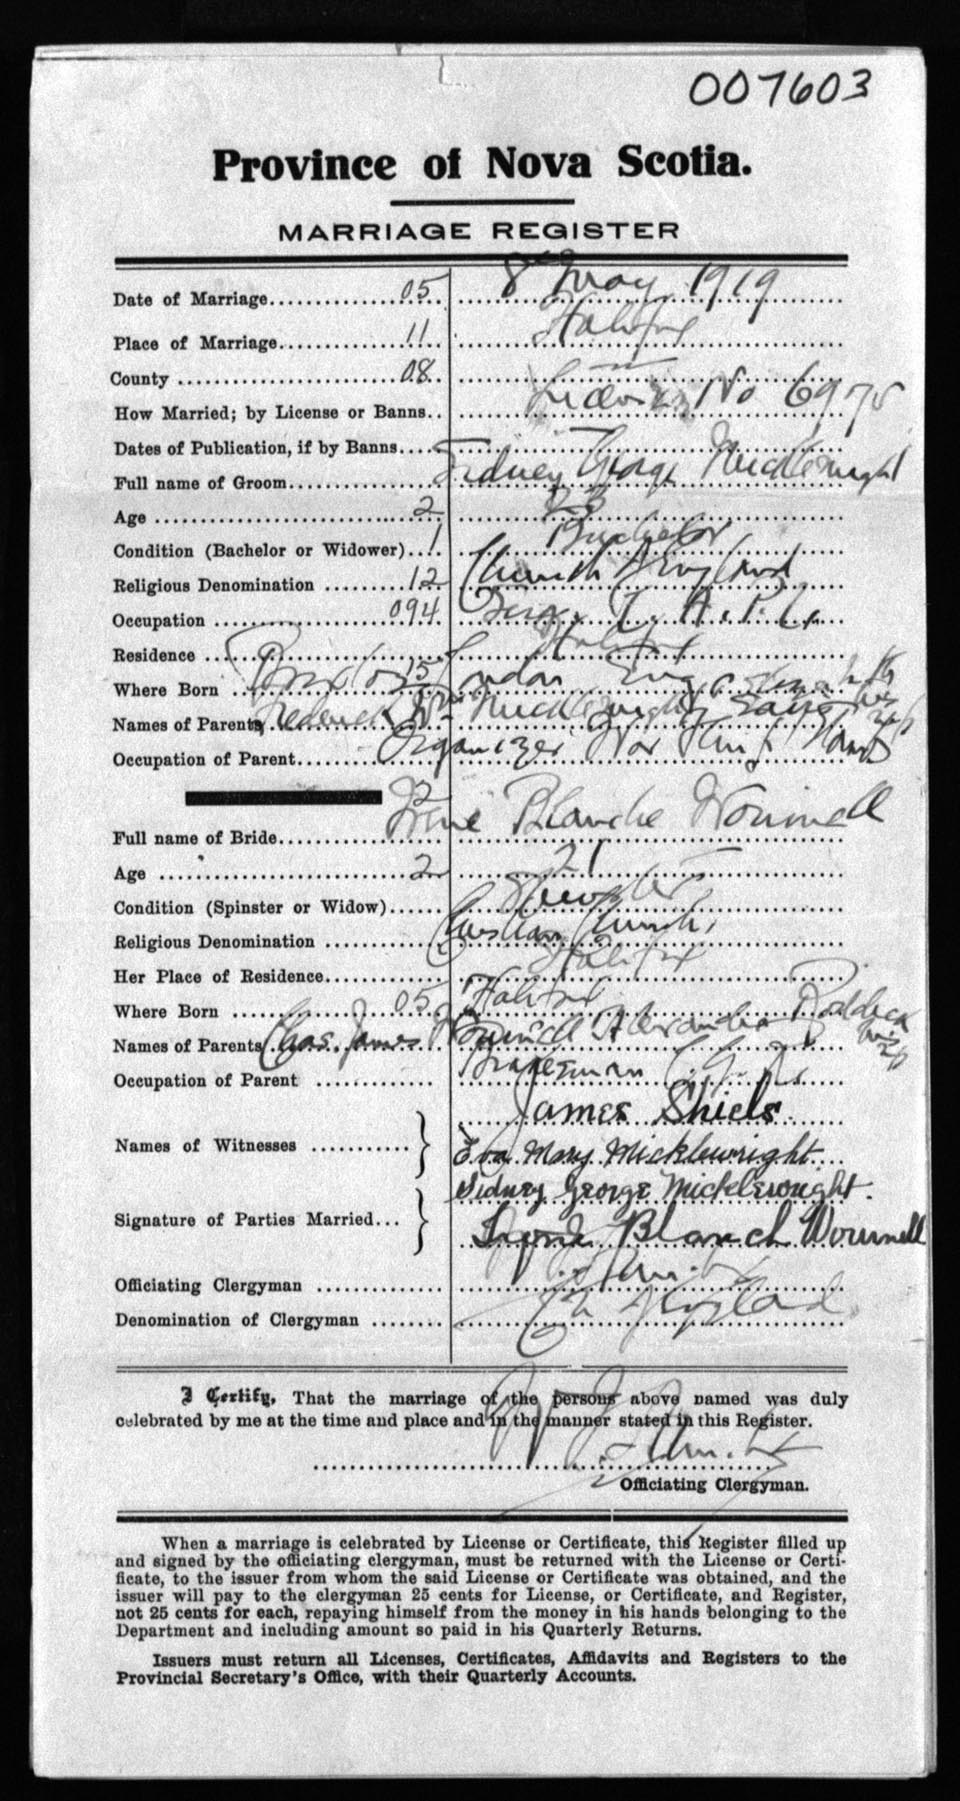 007603
Province of Nova Scotia.
MARRIAGE REGISTER
Date of Marriage 05 8th May 1919
Place of Marriage 11 Halifax
County 08
How Married; by License or Banns No 6975
Dates of Publication, if by Banns
Full name of Groom Sidney George Micklewright
Age 2 23
Condition (Bachelor or Widower) 1 Bachelor
Religious Denomination 12 Church England
Occupation 094 C. A. P. C.
Residence Halifax
Where Born Brixton 15 London Eng
Names of Parents Frederick Wm Micklewright
Occupation of Parent Organizer War
Full name of Bride 2 Irene Blanche Wournell
Age 2 21
Condition (Spinster or Widow) Spinster
Religious Denomination Christian Church
Her Place of Residence Halifax
Where Born 05 Halifax
Names of Parents Chas. James Wournell Alexandra
Occupation of Parent Brakesman C. G. R.
Names of Witnesses James Shiels
Eva Mary Micklewright
Signature of Parties Married Sidney George Micklewright.
Blanch Wournell
Officiating Clergyman
Denomination of Clergyman England
I Certify, That the marriage of the persons above named was duly
celebrated by me at the time and place and in the manner stated in this Register.
Officiating Clergyman.
When a marriage is celebrated by License or Certificate, this Register filled up
and signed by the officiating clergyman, must be returned with the License or Certi-
ficate, to the issuer from whom the said License or Certificate was obtained, and the
issuer will pay to the clergyman 25 cents for License, or Certificate, and Register,
not 25 cents for each, repaying himself from the money in his hands belonging to the
Department and including amount so paid in his Quarterly Returns.
Issuers must return all Licenses, Certificates, Affidavits and Registers to the
Provincial Secretary's Office, with their Quarterly Accounts.